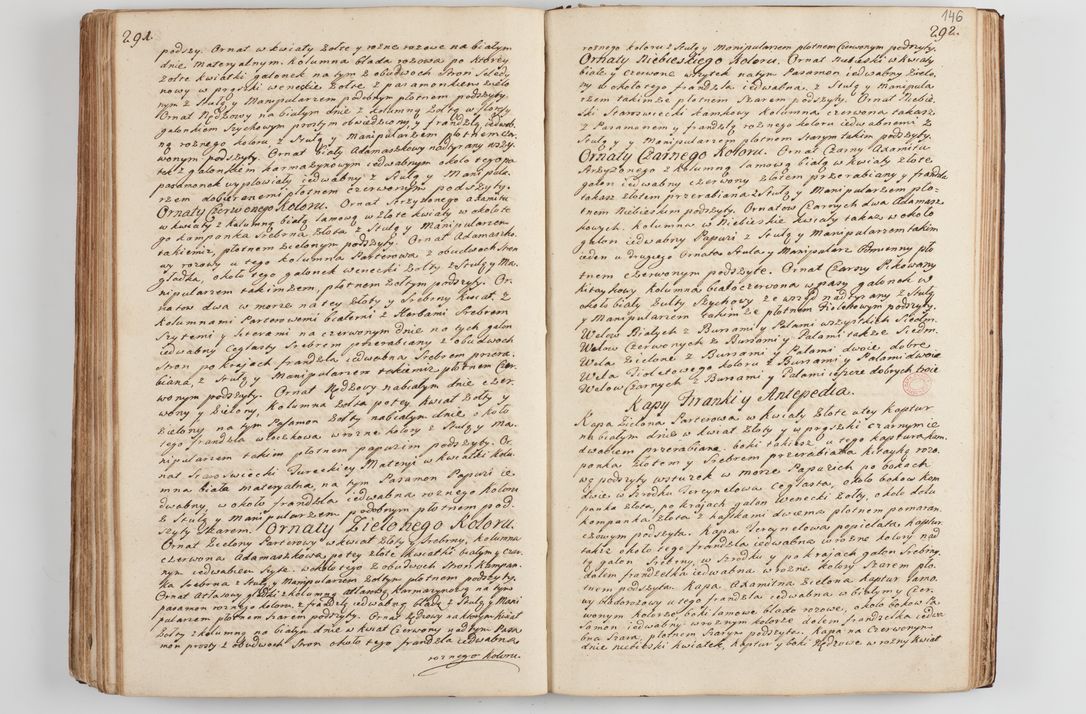 291.
podszy. Ornat w kwiaty żołte y rozne rozowe na białym
dnie materyalnym. kolumna blada rozowa po ktorey
żołte kwiatki galonek na tym z obudwoch Stron Seledy
nowy w prążki weneckie żołte z pasamonkiem zielo
nym z Stułą y Manipularzem podobnym płotnem podszyty.
Ornat Rędzowy na białym dnie z kolumną żołtą w
galonkiem Szychowym prostym obwiedziony y frandzlą iedwab
ną roznego koloru z Stułą y Manipularzem płotnem czer
wonym podszyty. Ornat Biały Adamaszkowy nadtyrany wszy
tek z galonkiem karmazynowym iedwabnym około tegoz
pasamonek wypłowiały iedwabny z Stułą y Manipula
rzem dobieranemi płotnem czerwonym podszyty.
Ornaty Czerwonego Koloru. Ornat Strzyżonego axamitu
w kwiaty z kolumną białą lamową w złote kwiaty w około te
go kampanka Srebrna złota z Stułą y Manipularzem
takiemiz, płotnem zielonym podszyty. Ornat Adamaszko
wy rozowy u tego kolumna Parterowa z obudwoch Stron
gładka, około tego galonek wenecki żołty z Stułą y Ma
nipularzem takimzem, płotnem żołtym podszyty. Or
natow dwa w morze na tey złoty y Srebrny kwiat. z
kolumnami Parterowemi białemi z Herbami Srebrem
Szytemi y literami na czerwonym dnie na tych galon
iedwabny Ceglasty Srebrem przerabiany z obudwoch
Stron po krajach frandzla iedwabna Srebrem przera
biana, z Stułą y Manipularzem takiemiz płotnem Czer
wonym podszyty. Ornat Rędzowy na białym dnie czer
wony y zielony, kolumna żołta po tey kwiat żołty y
zielony na tym Pasamon żołty na białym dnie około
tego frandzla włoczkowa w rozne kolory z Stułą y Ma
nipularzem takim płotnem papuzim podszyty. Or
nat Staroswiecki Tureckiey Materyi w kwiatki kolu
mna biała materyalna, na tym Pasamon Papuzi ie
dwabny, w około frandzla iedwabna roznego koloru
z Stułą y Manipularzem podobnym płotnem pod
szyty Szarem. Ornaty Zielonego Koloru.
Ornat Zielony Parterowy w kwiat złoty y Srebrny, kolumna
czerwona Adamaszkowa po tey złote kwiatki białym y czer
nym iedwabiem Szyte. w około tego z obudwoch Stron Kampan
ka Srebrna z Stułą y Manipularzem żołtym płotnem podszyty.
Ornat Atłasowy gładki z kolumną atłasową karmazynową na tym
pasamon roznego koloru, z frandzlą iedwabną bladą z Stułą y Mani
pularzem płotnem Szarem podszyty. Ornat Rędzowy na kwiat
żołty z kolumną na białym dnie w kwiat Czerwony nad tym Pasa
mon prosty z obudwoch Stron około tego frandzla iedwabna
roznego koloru.
146
292.
roznego koloru z Stułą y Manipularzem płotnem Czerwonym podszyty.
Ornaty Niebieskiego Koloru. Ornat Niebieski w kwiaty
białe y czerwone wszytek na tym Pasamon iedwabny Zielo
ny w około tego frandzla iedwabna, z Stułą y Manipula
rzem takimze płotnem Szarem podszyty. Ornat Niebie
ski Staroswiecki kamkowy kolumna czerwona takaz
z Paramonem y frandzlą roznego koloru iedwabnemi z
Stułą y y Manipularzem płotnem Starym takim podszyty.
Ornaty Czarnego Koloru. Ornat Czarny Axamitu
Strzyżonego z kolumną lamową białą w kwiaty złote
galon iedwabny czerwony złotem przerabiany y frandzla
takaz złotem przerabiana z Stułą y Manipularzem pło
tnem Niebieskim podszyty. Ornatow Czarnych dwa Adamasz
kowych. Kolumna w Niebieskie kwiaty takaz w około
galon iedwabny Papuzi z Stułą y Manipularzem takim
ieden u drugiego Ornatu Stuła y Manipularz Odmienny pło
tnem czerwonym podszyte. Ornat Czarny Pikowany
kitaykowy kolumna białoczerwona w pasy galonek w
około biały żołty Szychowy ze wszyst nadtyrany z Stułą
y Manipularzem takimże płotnem Fioletowym podszyty.
Welow Białych z Bursami y Palami wszystkich Siedm.
Welow Czerwonych z Bursami y Palami także Siedm.
Wela Zielone z Bursami y Palami dwoie dobre
Wela Fioletowego koloru z Bursami y Palami dwoie
Welow Czarnych z Bursami y Palami ieszcze dobrych troie
Kapy Firanki y Antepedia.
Kapa Zielona Parterowa w kwiaty złote u tey kaptur
na białym dnie w kwiat złoty y w prążki czarnym ie
dwabiem przerabiana. boki takież u tego kaptura kam
panka złotem y Srebrem przerabiana kitaykę rozo
wę podszyty wszturek w morze Papuzich po bokach
dwie w Srodku Tercynelowa Ceglasta, około bokow kam
panka złota, po krajach galon Wenecki żołty, około dołu
kompanka złota z haftkami dwiema płotnem pomaran
czowym podszyta. Kapa Tercynelowa popielata, kaptur
także około tego frandzla iedwabna w rozne kolory nad
tą galon Srebrny, w Srodku y po krajach galon Srebrny.
dołem frandzelka iedwabna w rozne kolory Szarem pło
tnem podszyta. Kapa Axamitna Zielona kaptur lamo
wy bladorozowy u tego frandzla iedwabna w białym y Czer
wonym kolorze boki lamowe blado rozowe, około bokow Pa
samon iedwabny w roznym kolorze dołem frandzelka iedwa
bna Stara, płotnem Szarym podszyta. Kapa na Czerwonym
dnie niebieski kwiatek, kaptur y boki Rędzowe w rozny kwiat